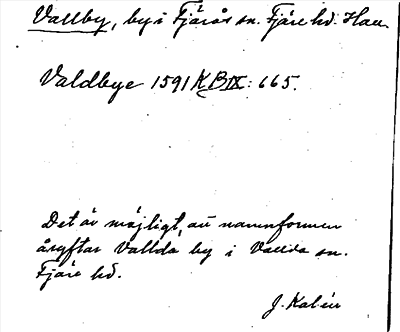 Vallby, by i Fjärås sn. Fjäre hd. Hall.
Valdbye 1591 KB IX: 665.
Det är möjligt, att namnformen
åsyftar Vallda by i Vallda sn.
Fjäre hd.
J. Kalén